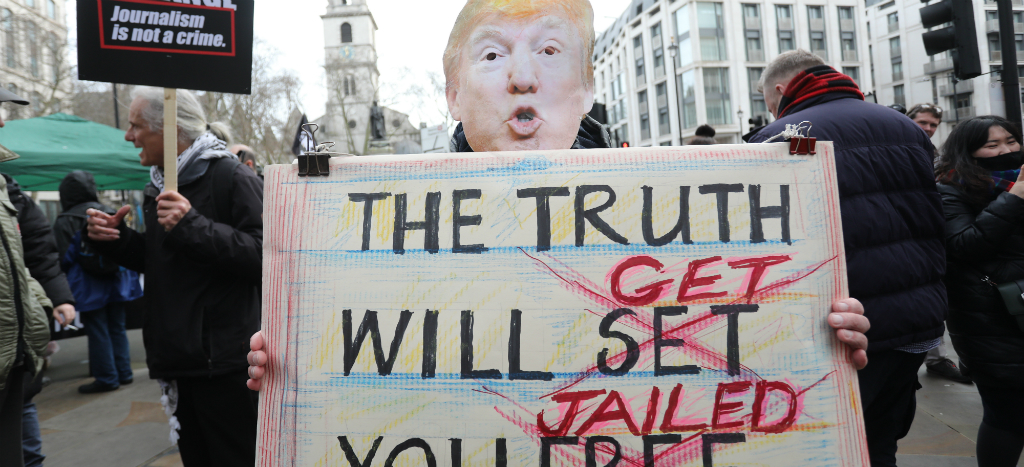 Journalism
is not a crime.
THE TRUTH
GET
WILL SET
JAILED
YOU FREE